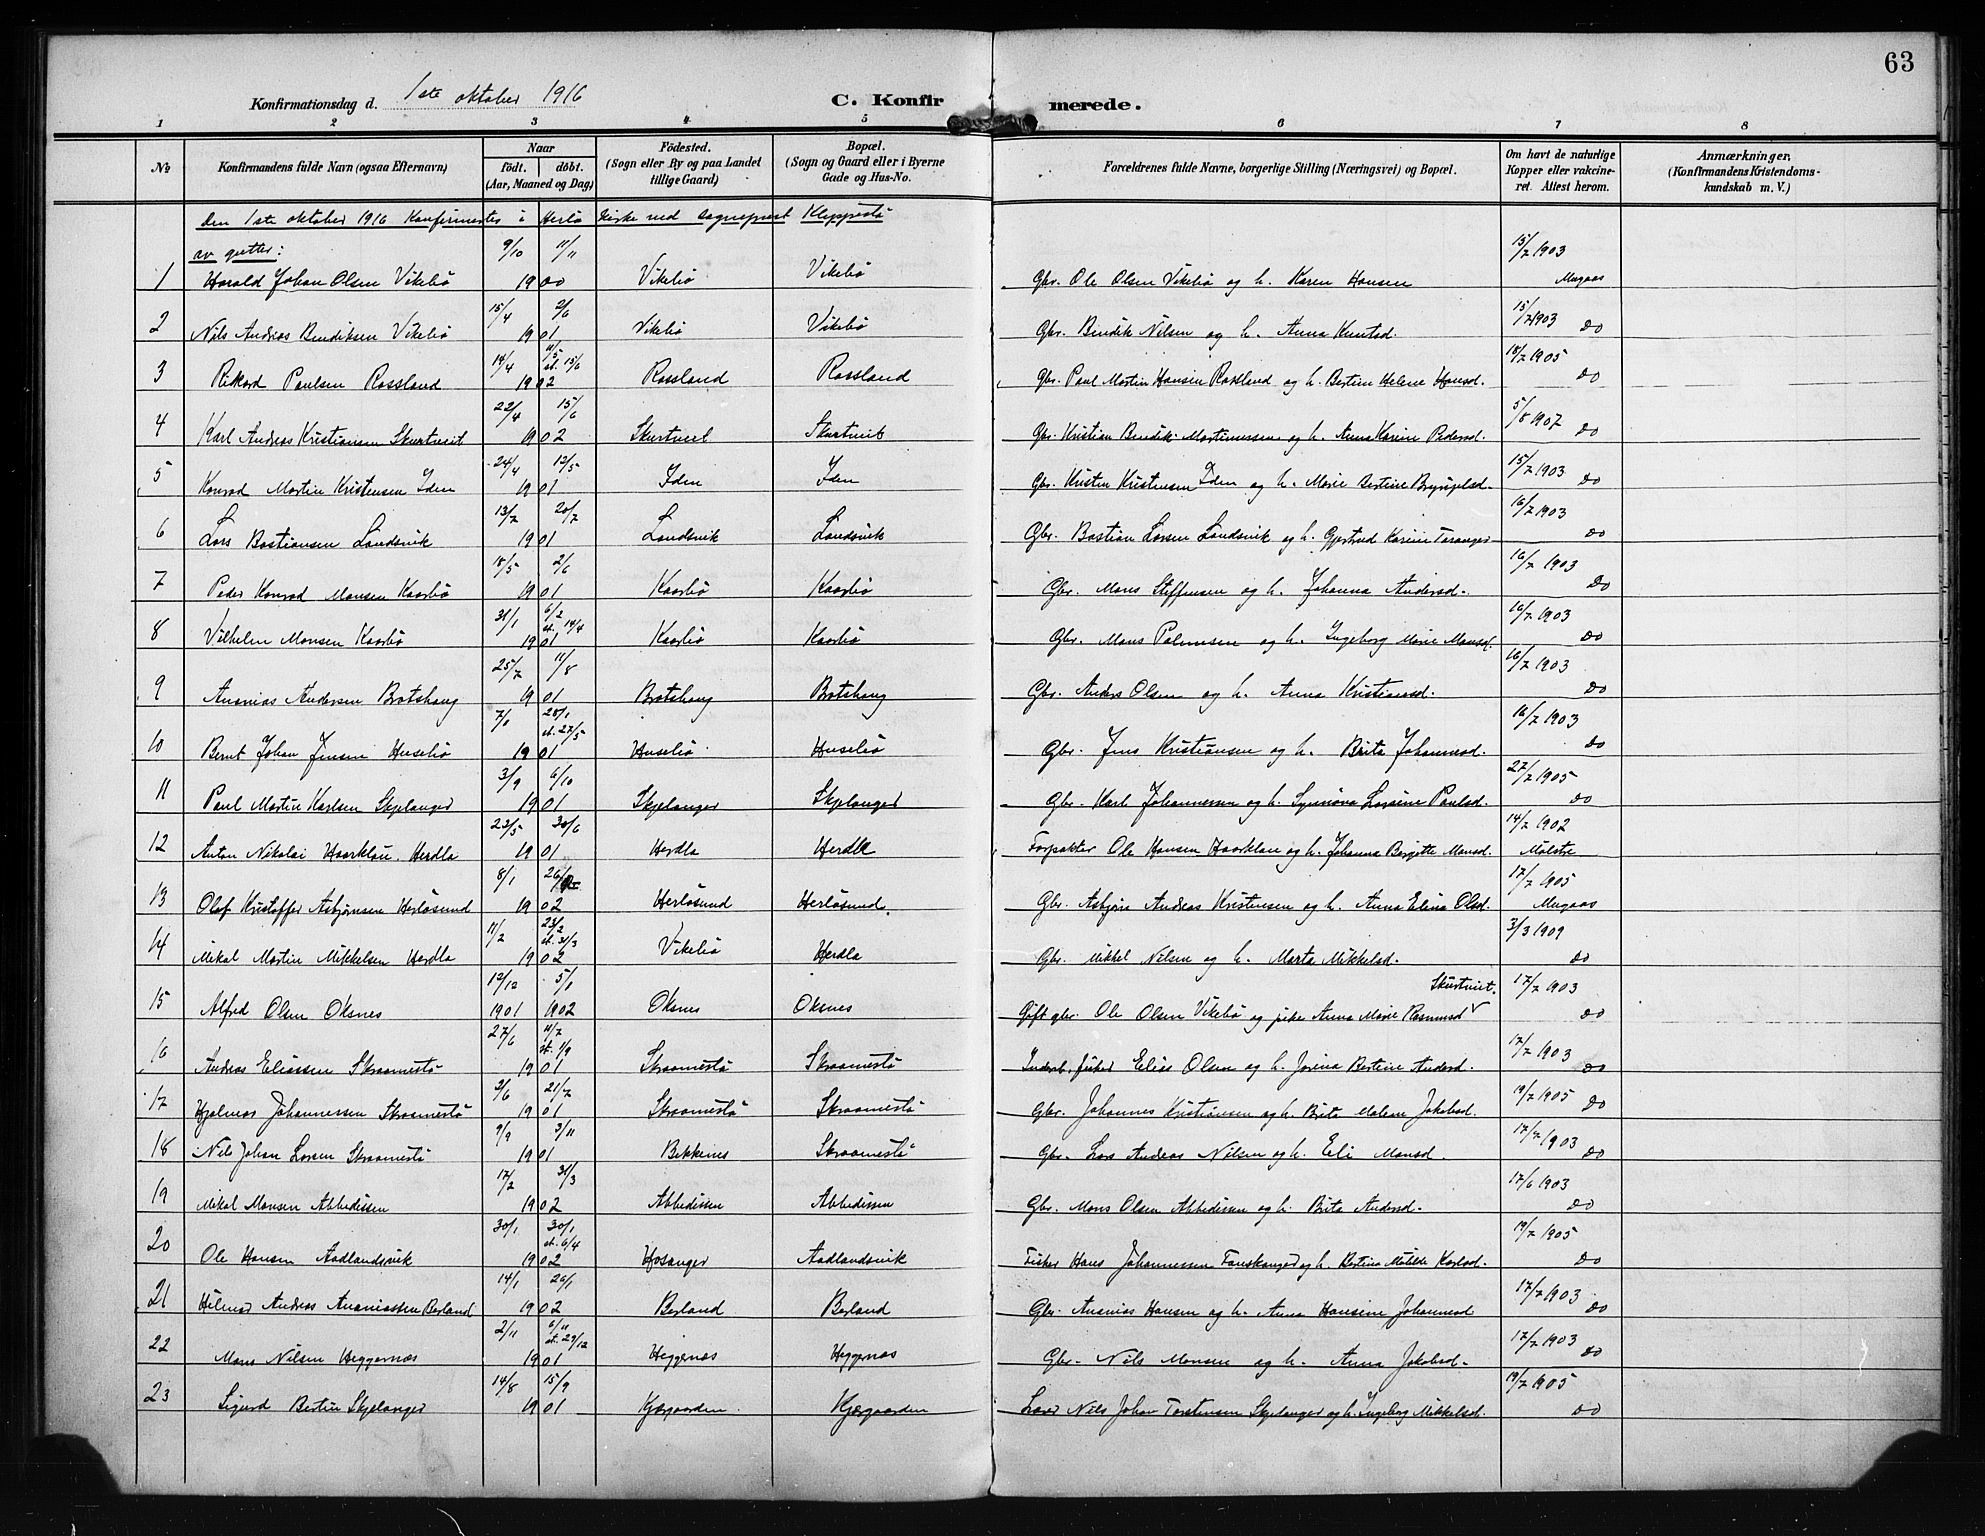 63
Konfirmationsdag d. 1ste oktober 1916 C. Konfirmerede.
1 2 3 4 5 6 7 8
№ Konfirmandens fulde Navn (ogsaa Efternavn) Naar Födt. döbt. (Aar, Maaned og Dag) Födested. (Sogn eller By og paa Landet tillige Gaard) Bopæl. (Sogn og Gaard eller i Byerne Gade og Hus-No. Forældrenes fulde Navne, borgerlige Stilling (Næringsvei) og Bopæl. Om havt de naturlige Kopper eller vakcineret. Attest herom. Anmærkninger. (Konfirmandens Kristendomskundskab m. V.)
Den 1ste oktober 1916 Konfirmertes i Herlö kirke ved sogneprest Kleppestö
av gutter:
1 Harald Johan Olsen Vikebö 9/10 11/11 1900 Vikebö Vikebö Gbr. Ole Olsen Vikebö og h. Karen Hansen 15/7 1903 Mugaas
2 Nils Andreas Bendiksen Vikebö 15/4 2/6 1901 Vikebö Vikebö Gbr. Bendik Nilsen og h. Anna Knutsd. 15/7 1903 Do
3 Rikard Paulsen Rossland 14/4 11/5 st. 15/6 1902 Rossland Rossland Gbr. Paul Martin Hansen Rossland og h. Bertine Helene Hansd. 18/7 1905 Do
4 Karl Andreas Kristiansen Skurtveit 22/4 15/6 1902 Skurtveit Skurtveit Gbr. Kristian Bendik Martinussen og h. Anna Karine Pedersd. 5/8 1907 Do
5 Konrad Martin Kristensen Iden 24/4 12/5 1901 Iden Iden Gbr. Kristen Kristensen Iden og h. Marie Bertine Brynjelsd. 15/7 1903 Do
6 Lars Bastiansen Landsvik 13/7 20/7 1901 Landsvik Landsvik Gbr. Bastian Larsen Landsvik og h. Gjertrud Karine Taranger 16/7 1903 Do
7 Peder Konrad Monsen Kaarbö 18/5 2/6 1901 Kaarbö Kaarbö Gbr. Mons Steffensen og h. Johanna Andersd. 16/7 1903 Do
8 Vilhelm Monsen Kaarbö 31/1 6/2 st. 14/4 1901 Kaarbö Kaarbö Gbr. Mons Palmesen og h. Ingeborg Marie Monsd. 16/7 1903 Do
9 Ananias Andersen Bratshaug 25/7 11/8 1901 Bratshaug Bratshaug Gbr. Anders Olsen og h. Anna Kristiansd. 16/7 1903 Do
10 Bernt Johan Jensen Husebö 7/1 20/1 st. 27/5 1901 Husebö Husebö Gbr. Jens Kristiansen og h. Brita Johannesd. 16/7 1903 Do
11 Paul Martin Karlsen Skjelanger 3/9 6/10 1901 Skjelanger Skjelanger Gbr. Karl Johannessen og h. Synnöva Larsine Paulsd. 27/7 1905 Do
12 Anton Nikolai Haarklau Herdla 23/5 30/6 1901 Herdla Herdla Forpakter Ole Hansen Haarklau og h. Johanna Bergitte Monsd. 14/7 1902 Molstre
13 Olaf Kristoffer Asbjørnsen Herlösund 8/1 26/ 1902 Herlösund Herlösund Gbr. Asbjørn Andreas Kristensen og h. Anna Elina Olsd. 17/7 1905 Mugaas
14 Mikal Martin Mikkelsen Herdla 11/2 23/2 st. 31/3 1902 Vikebö Herdla Gbr. Mikkel Nilsen og h. Marta Mikkelsd. 3/3 1909 Do
15 Alfred Olsen Oksnes 12/12 1901 5/1 1902 Oksnes Oksnes Gift gbr. Ole Olsen Vikebö og pike Anna Marie Rasmusd Skurtveit. 17/7 1903 Do
16 Andreas Eliassen Skraamestö 27/6 11/7 st. 1/9 1901 Skraamestö Skraamestö Inderst, fisker Elias Olsen og h. Jorina Bertine Andersd. 17/7 1903 Do
17 Hjalmar Johannessen Skraamestö 3/6 21/7 1901 Skraamestö Skraamestö Gbr. Johannes Kristiansen og h. Brita Malene Jakobsd. 19/7 1905 Do
18 Nils Johan Larsen Skraamestö 9/9 3/11 1901 Bekkenes Skraamestö Gbr. Lars Andreas Nilsen og h. Eli Monsd. 17/7 1903 Do
19 Mikal Monsen Abbedissen 17/2 31/3 1902 Abbedissen Abbedissen Gbr. Mons Olsen Abbedissen og h. Brita Andersd. 17/6 1903 Do
20 Ole Hansen Aadlandsvik 30/1 30/1 st. 6/4 1902 Hosanger Aadlandsvik Fisker Hans Johannessen Fanskanger og h. Bertina Matilde Karlsd. 19/7 1905 Do
21 Hilmar Andreas Ananiassen Berland 14/1 26/1 1902 Berland Berland Gbr. Ananias Hansen og h. Anna Hansine Johannesd 17/7 1903 Do
22 Mons Nilsen Heggernæs 2/11 6/11 st. 29/12 1901 Heggernæs Heggernæs Gbr. Nils Monsen og h. Anna Jakobsd. 17/7 1903 Do
23 Sigurd Bertin Skjelanger 14/8 15/9 1901 Kjærgaarden Kjærgaarden Lærer Nils Johan Torstensen Skjelanger og h. Ingeborg Mikkelsd. 19/7 1905 Do